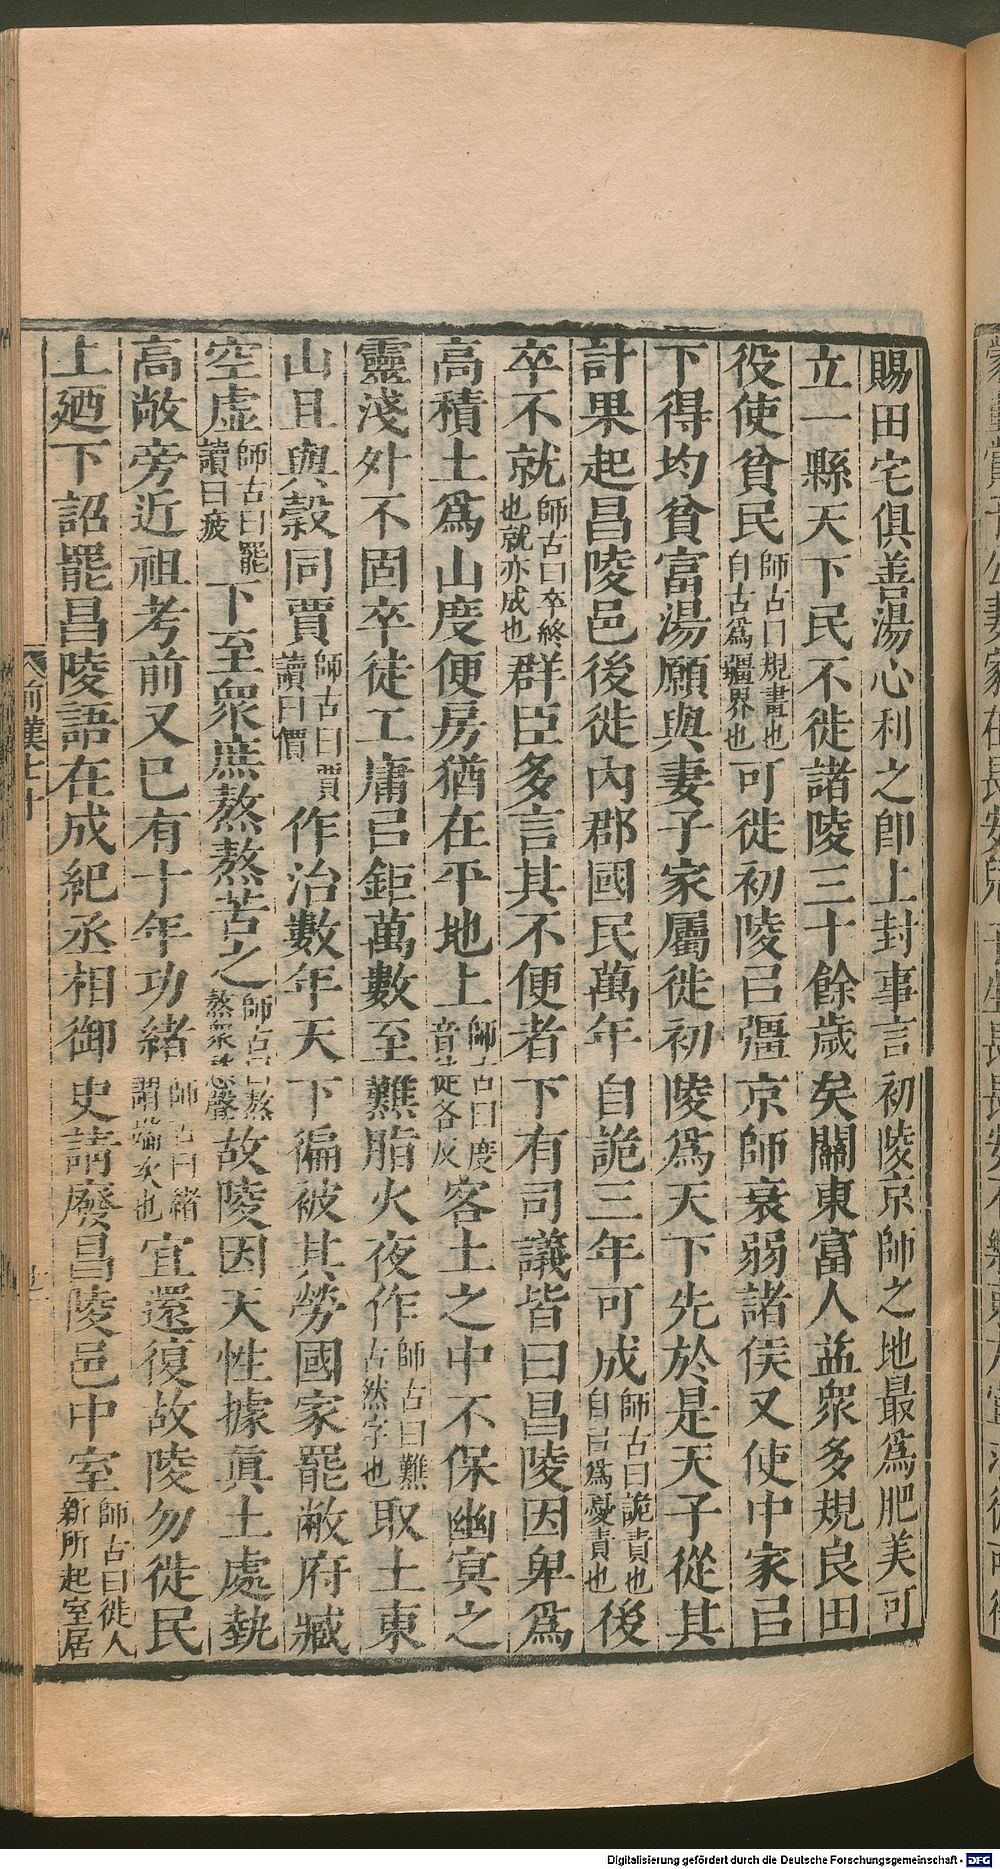 賜田宅俱善湯心利之卽上封事言初陵京師之地最爲肥美可
立一縣天下民不徙諸陵三十餘歲矣關東富人益衆多規良田
役使貧民師古曰規畫也自古爲疆界也可徙初陵㠯彊京師衰弱諸侯又使中家㠯
下得均貧富湯願與妻子家屬徙初陵爲天下先於是天子從其
計果起昌陵邑後徙內郡國民萬年自詭三年可成師古曰詭責也自㠯爲憂責也後
卒不就師古曰卒終也就亦成也群臣多言其不便者下有司議皆曰昌陵因卑爲
高積土爲山度便房猶在平地上師古曰度音徒各反客土之中不保幽冥之
靈淺外不固卒徒工庸㠯鉅萬數至難脂火夜作師古曰難古然字也取土東
山且與穀同賈師古曰賈讀曰價作治數年天下徧被其勞國家罷敝府臧
空虛師古曰罷讀曰疲下至衆庶熬熬苦之師古曰熬熬衆愁聲故陵因天性據眞土處埶
高敞旁近祖考前又已有十年功緒師古曰緒謂端次也宜還復故陵勿徙民
上廼下詔罷昌陵語在成紀丞相御史請廢昌陵邑中室師古曰徙人新所起室居
前漢七十
Digitalisierung gefördert durch die Deutsche Forschungsgemeinschaft - DFG